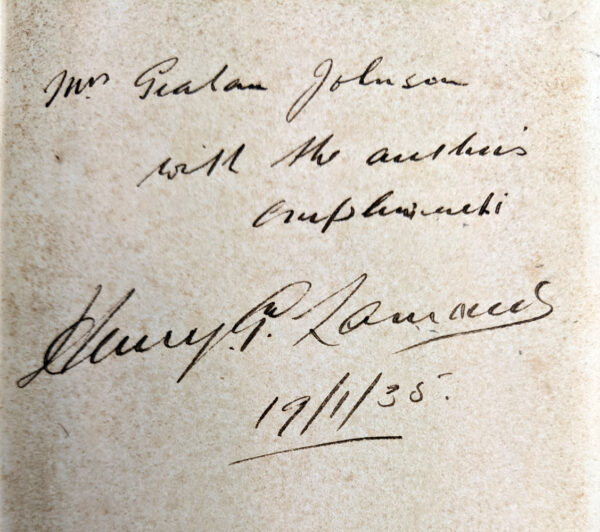 Mrs Graham Johnson
with the author's
compliments
Henry G. Lamond
19/1/35.